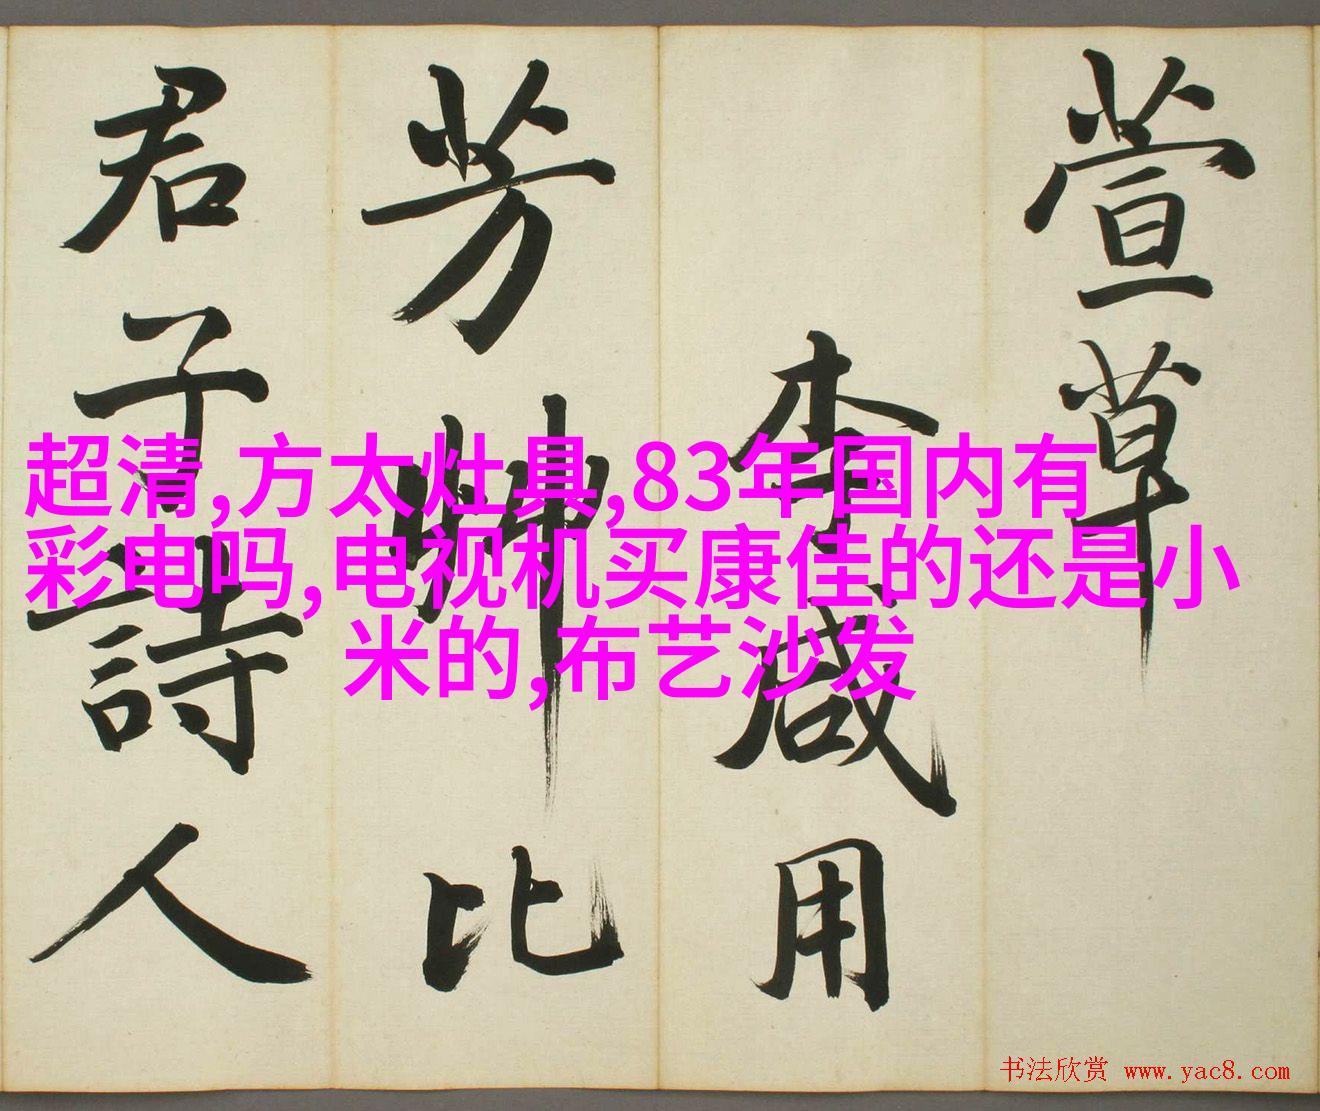 萱草
李咸用
芳艸比
君子詩人
超清,方太灶具,83年国内有
彩电吗,电视机买康佳的还是小
米的,布艺沙发
书法欣赏 www.yac8.com